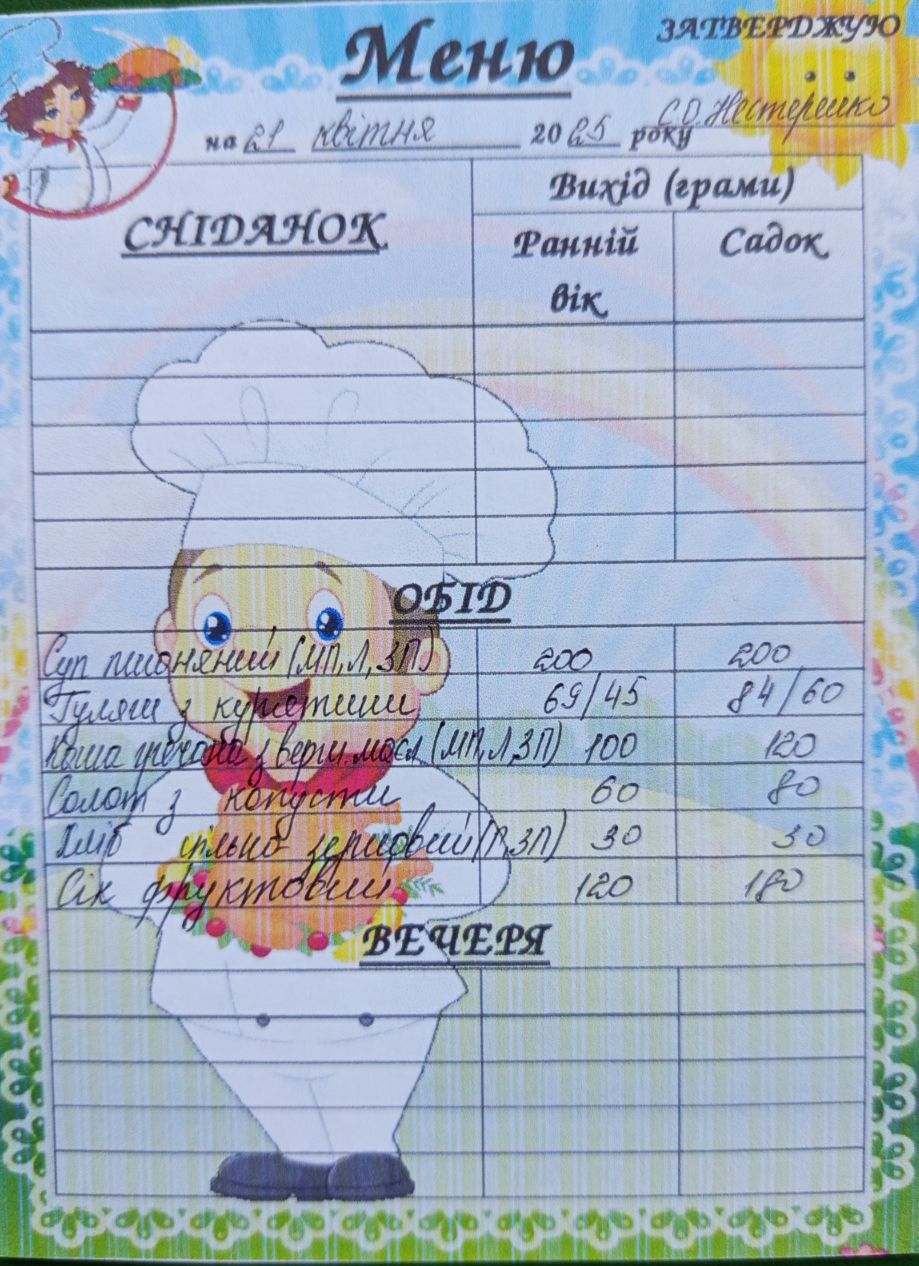 ЗАТВЕРДЖУЮ
Меню
С.О. Нестеренко
на 21 квітня 2025 року
СНІДАНОК
Вихід (грами)
Ранній вік
Садок
ОБІД
Суп пшоняний (МП, Л, ЗП) 200 200
Гуляш з курятини 69/45 84/60
Каша гречана з верш. масл (МП, Л, ЗП) 100 120
Салат з капусти 60 80
Хліб цільно зерновий (П, ЗП) 30 30
Сік фруктовий 120 180
ВЕЧЕРЯ